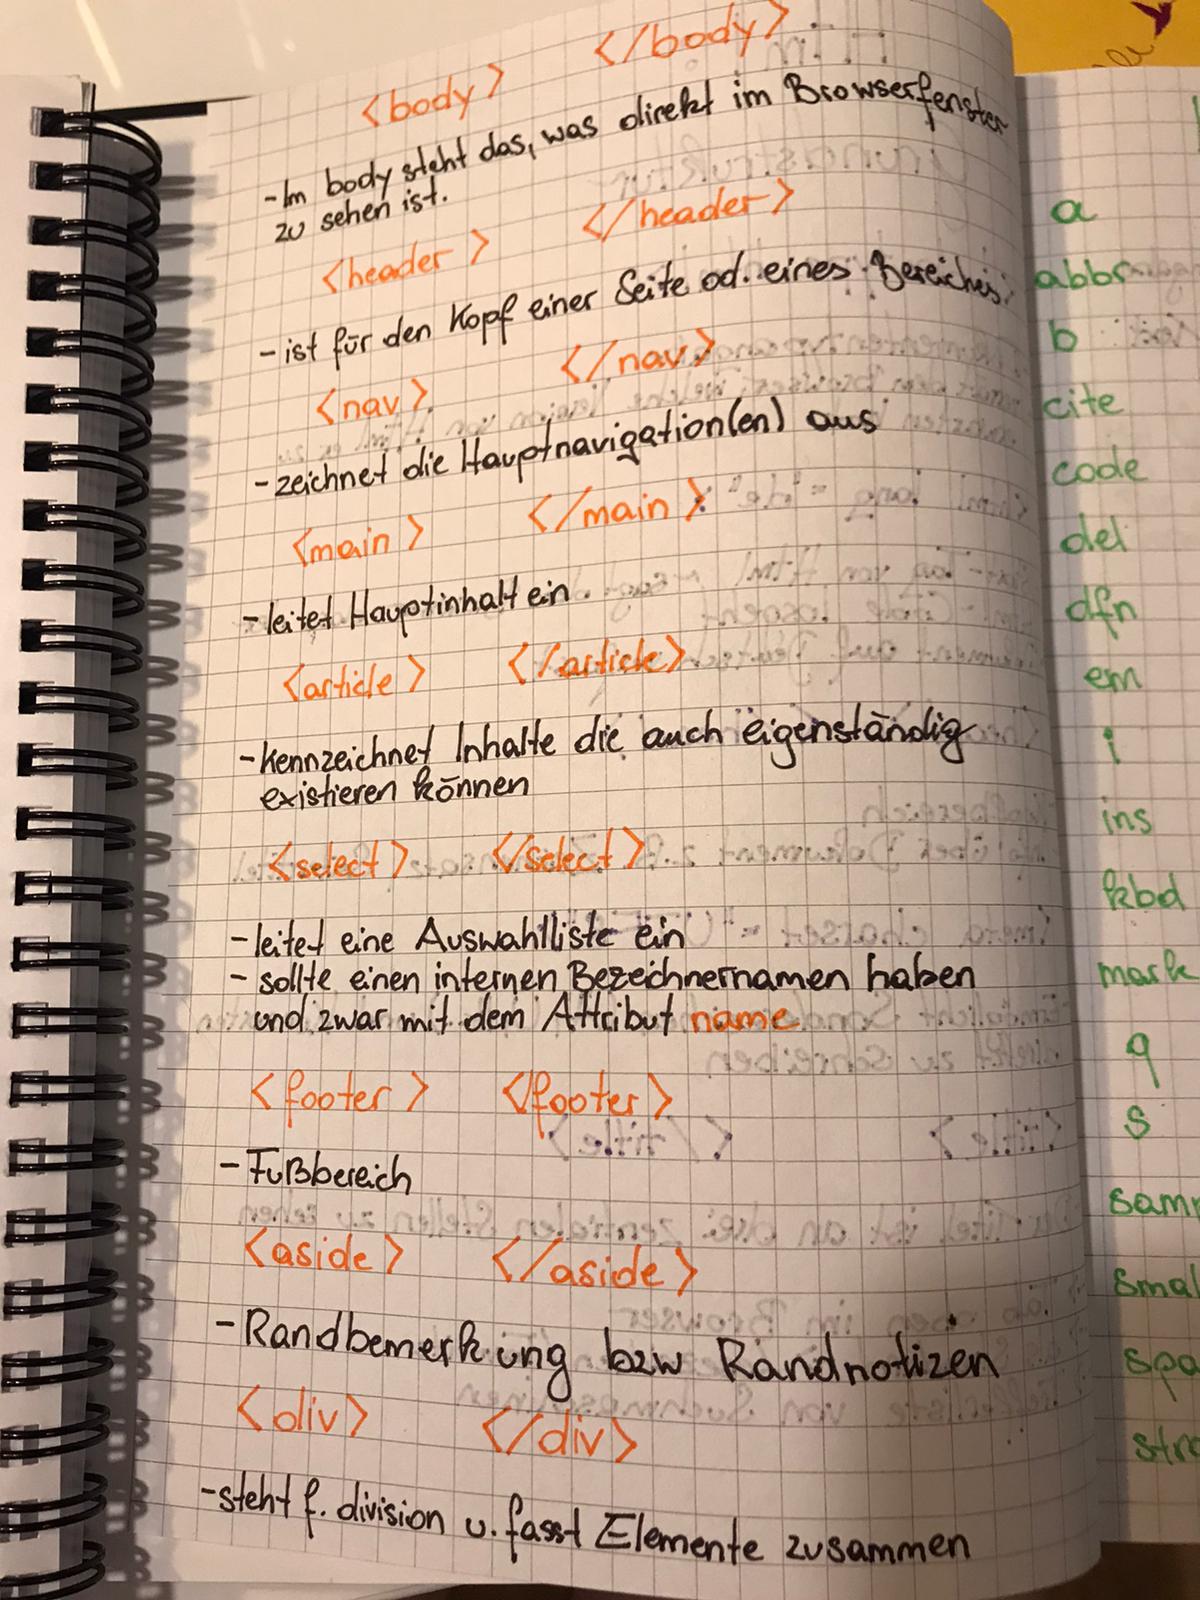 <body> </body>
- Im body steht das, was direkt im Browserfenster
zu sehen ist.
<header> </header>
- ist für den Kopf einer Seite od. eines Bereiches.
<nav> </nav>
- zeichnet die Hauptnavigation(en) aus
<main> </main>
- leitet Hauptinhalt ein.
<article> </article>
- kennzeichnet Inhalte die auch eigenständig
existieren können
<select> </select>
- leitet eine Auswahlliste ein
- sollte einen internen Bezeichnernamen haben
und zwar mit dem Attribut name
<footer> </footer>
- Fußbereich
<aside> </aside>
- Randbemerkung bzw Randnotizen
<div> </div>
- steht f. division u. fasst Elemente zusammen
a
abbr
b
cite
code
del
dfn
em
i
ins
kbd
mark
q
s